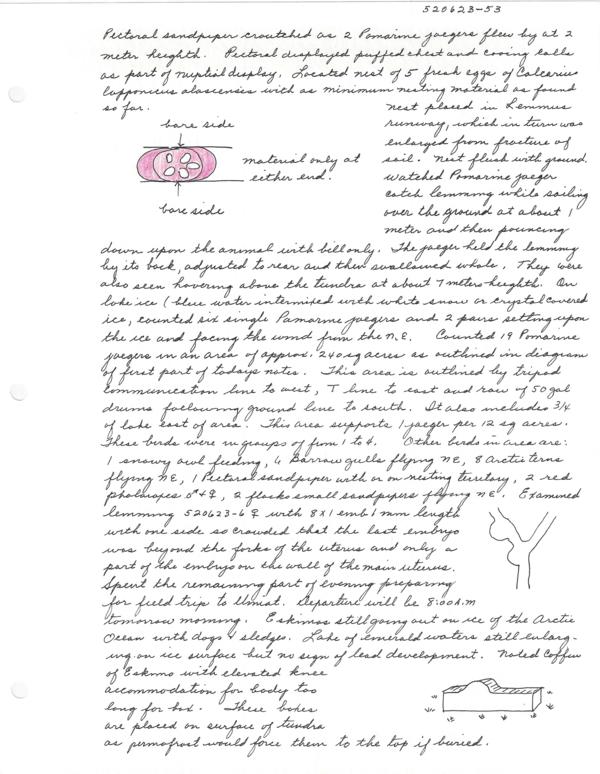 520623-53
Pectoral sandpiper croutched as 2 Pomarine jaegers flew by at 2
meter heighth. Pectoral displayed puffed chest and cooing calls
as part of nuptial display. Located nest of 5 fresh eggs of Calcarius
lapponicus alascensis with as minimum nesting material as found
so far.
bare side
material only at
either end.
bare side
nest placed in Lemmus
runway, which in turn was
enlarged from fracture of
soil. Nest flush with ground.
Watched Pomarine jaeger
catch lemming while sailing
over the ground at about 1
meter and then pouncing
down upon the animal with bill only. The jaeger held the lemming
by its back, adjusted to rear and then swallowed whole. They were
also seen hovering above the tundra at about 7 meters heighth. On
lake ice (blue water intermixed with white snow or crystal covered
ice, counted six single Pomarine jaegers and 2 pairs setting upon
the ice and facing the wind from the N.E. Counted 19 Pomarine
jaegers in an area of approx. 240 sq acres as outlined in diagram
of first part of todays notes. This area is outlined by tripod
communication line to west, T line to east and row of 50 gal
drums following ground line to south. It also includes 3/4
of lake east of area. This area supports 1 jaeger per 12 sq acres.
These birds were in groups of from 1 to 4. Other birds in area are:
1 snowy owl feeding, 4 Barrow gulls flying NE, 8 Arctic terns
flying NE, 1 Pectoral sandpiper with or on nesting territory, 2 red
phalaropes ♂ + ♀, 2 flocks small sandpipers flying NE. Examined
lemming 520623-6 ♀ with 8 x 1 emb 1 mm length
with one side so crowded that the last embryo
was beyond the forks of the uterus and only a
part of the embryo on the wall of the main uterus.
Spent the remaining part of evening preparing
for field trip to Umiat. Departure will be 8:00 A.M
tomorrow morning. Eskimos still going out on ice of the Arctic
Ocean with dogs & sledges. Lake of emerald waters still enlarg-
ing on ice surface but no sign of lead development. Noted coffin
of Eskimo with elevated knee
accommodation for body too
long for box. These boxes
are placed on surface of tundra
as permafrost would force them to the top if buried.